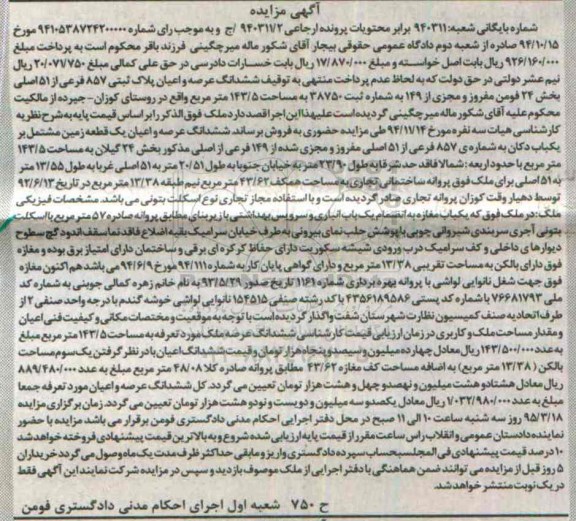 آگهی مزایده
شماره بایگانی شعبه: ۹۴۰۳۱۱ برابر محتویات پرونده ارجاعی ۹۴۰۳۱۱/۲ ج/ و به موجب رای شماره ۹۴۱۰۵۳۸۷۲۴۲۰۰۰۰۰ مورخ
۹۴/۱۰/۱۵ صادره از شعبه دوم دادگاه عمومی حقوقی بیجار آقای شکور ماله میرچگینی فرزند باقر محکوم است به پرداخت مبلغ
۹۲۶/۱۶۰/۰۰۰ ریال بابت اصل خواسته و مبلغ ۱۷/۸۷۰/۰۰۰ ریال بابت خسارات دادرسی در حق علی کمالی مبلغ ۲۰/۰۷۷/۷۵۰ ریال
نیم عشر دولتی در حق دولت که به لحاظ عدم پرداخت منتهی به توقیف ششدانگ عرصه و اعیان پلاک ثبتی ۸۵۷ فرعی از ۵۱ اصلی
بخش ۲۴ فومن مفروز و مجزی از ۱۴۹ به شماره ثبت ۳۸۷۵۰ به مساحت ۱۴۳/۵ متر مربع واقع در روستای کوزان - جیرده از مالکیت
محکوم علیه آقای شکور ماله میرچگینی گردیده است علیهذا این اجرا قصد دارد ملک فوق الذکر را بر اساس قیمت پایه به شرح نظریه
کارشناسی هیات سه نفره مورخ ۹۴/۱۱/۱۴ طی مزایده حضوری به فروش برساند. ششدانگ عرصه و اعیان یک قطعه زمین مشتمل بر
یکباب دکان به شماره ی ۸۵۷ فرعی از ۵۱ اصلی مفروز و مجزی شده از ۱۴۹ فرعی از اصلی مذکور بخش ۲۴ گیلان به مساحت ۱۴۳/۵
متر مربع با حدود اربعه: شمالا فاقد حد شرقا به طول ۲۳/۹۰ متر به خیابان جنوبا به طول ۲۰/۵۱ متر به ۵۱ اصلی غربا به طول ۱۳/۵۵ متر
به ۵۱ اصلی برای ملک فوق پروانه ساختمانی تجاری به مساحت همکف ۴۳/۶۲ متر مربع نیم طبقه ۱۳/۳۸ متر مربع در تاریخ ۹۲/۶/۱۳
توسط دهیار وقت کوزان پروانه تجاری صادر گردیده است و با استفاده مجاز تجاری نوع اسکلت بتونی می باشد. مشخصات فیزیکی
ملک: در ملک فوق که یکباب مغازه به انضمام یک باب انباری و سرویس بهداشتی با زیربنای مطابق پروانه صادره ۵۷ متر مربع با اسکلت
بتونی آجری سربندی شیروانی چوبی با پوشش حلب نمای بیرونی به طرف خیابان سرامیک بقیه اضلاع فاقد نما سقف اندود گچ سطوح
دیوارهای داخلی و کف سرامیک درب ورودی شیشه سکوریت دارای حفاظ کرکره ای برقی و ساختمان دارای امتیاز برق بوده و مغازه
فوق دارای بالکن به مساحت تقریبی ۱۳/۳۸ متر مربع و دارای گواهی پایان کار به شماره ۹۴/۱۱۱ مورخ ۹۴/۶/۹ می باشد هم اکنون مغازه
فوق جهت شغل نانوایی لواشی با پروانه بهره برداری شماره ۱۱۶۱ تاریخ صدور ۹۳/۵/۲۹ به نام خانم زهره کمالی جوینی به شماره کد
ملی ۷۶۶۸۱۷۹۳ با شماره کد پستی ۴۳۵۶۱۸۹۵۸۶ با کد رشته صنفی ۱۵۴۵۱۵ نانوایی لواشی خوشه گندم با درجه واحد صنفی ۲ از
طرف اتحادیه صنف کمیسیون نظارت شهرستان شفت واگذار گردیده است با توجه به موقعیت و مختصات مکانی و کیفیت فنی اعیان
و مقدار مساحت ملک و کاربری در زمان ارزیابی قیمت کارشناسی ششدانگ عرصه ملک مورد تعرفه به مساحت ۱۴۳/۵ متر مربع مبلغ
به عدد ۱۴۳/۵۰۰/۰۰۰ ریال معادل چهارده میلیون و سیصد و پنجاه هزار تومان و قیمت ششدانگ اعیان با در نظر گرفتن یک سوم مساحت
بالکن (۱۳/۳۸ متر مربع) به اضافه مساحت کف مغازه ۴۳/۶۲ مطابق پروانه صادره کلا ۴۸/۰۸ متر مربع مبلغ به عدد ۸۸۹/۴۸۰/۰۰۰
ریال معادل هشتاد و هشت میلیون و نهصد و چهل و هشت هزار تومان تعیین می گردد. کل ششدانگ عرصه و اعیان مورد تعرفه جمعا
مبلغ به عدد ۱/۰۳۲/۹۸۰/۰۰۰ ریال معادل یکصد و سه میلیون و دویست و نود و هشت هزار تومان تعیین می گردد. زمان برگزاری مزایده
۹۵/۳/۱۸ روز سه شنبه ساعت ۱۰ الی ۱۱ صبح در محل دفتر اجرایی احکام مدنی دادگستری فومن برقرار می باشد مزایده با حضور
نماینده دادستان عمومی و انقلاب راس ساعت مقرر از قیمت پایه ارزیابی شده شروع و به بالاترین قیمت پیشنهادی فروخته خواهد شد
۱۰ درصد قیمت پیشنهادی فی المجلس به حساب سپرده دادگستری واریز و مابقی حداکثر ظرف مدت یک ماه وصول می گردد خریداران
۵ روز قبل از مزایده می توانند ضمن هماهنگی با دفتر اجرایی از ملک موصوف بازدید و سپس در مزایده شرکت نمایند این آگهی فقط
در یک نوبت منتشر خواهد شد.
ح ۷۵۰ شعبه اول اجرای احکام مدنی دادگستری فومن